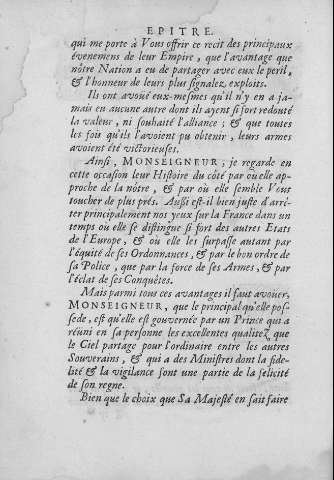 EPITRE.
qui me porte à Vous offrir ce recit des principaux
évenemens de leur Empire, que l'avantage que
nôtre Nation a eu de partager avec eux le peril,
& l'honneur de leurs plus signalez exploits.
Ils ont avoüé eux-mesmes qu'il n'y en a ja-
mais eu aucune autre dont ils ayent si fort redouté
la valeur, ni souhaité l'alliance; & que toutes
les fois qu'ils l'avoient pu obtenir, leurs armes
avoient été victorieuses.
Ainsi, MONSEIGNEUR; je regarde en
cette occasion leur Histoire du côté par où elle ap-
proche de la nôtre, & par où elle semble Vous
toucher de plus prés. Aussi est-il bien juste d'arré-
ter principalement nos yeux sur la France dans un
temps où elle se distingue si fort des autres Etats
de l'Europe, & où elle les surpasse autant par
l'équité de ses Ordonnances, & par le bon ordre de
sa Police, que par la force de ses Armes, & par
l'éclat de ses Conquêtes.
Mais parmi tous ces avantages il faut avoüer,
MONSEIGNEUR, que le principal qu'elle pos-
sede, est qu'elle est gouvernée par un Prince qui a
réuni en sa personne les excellentes qualitez que
le Ciel partage pour l'ordinaire entre les autres
Souverains, & qui a des Ministres dont la fide-
lité & la vigilance sont une partie de la felicité
de son regne.
Bien que le choix que Sa Majesté en sait faire